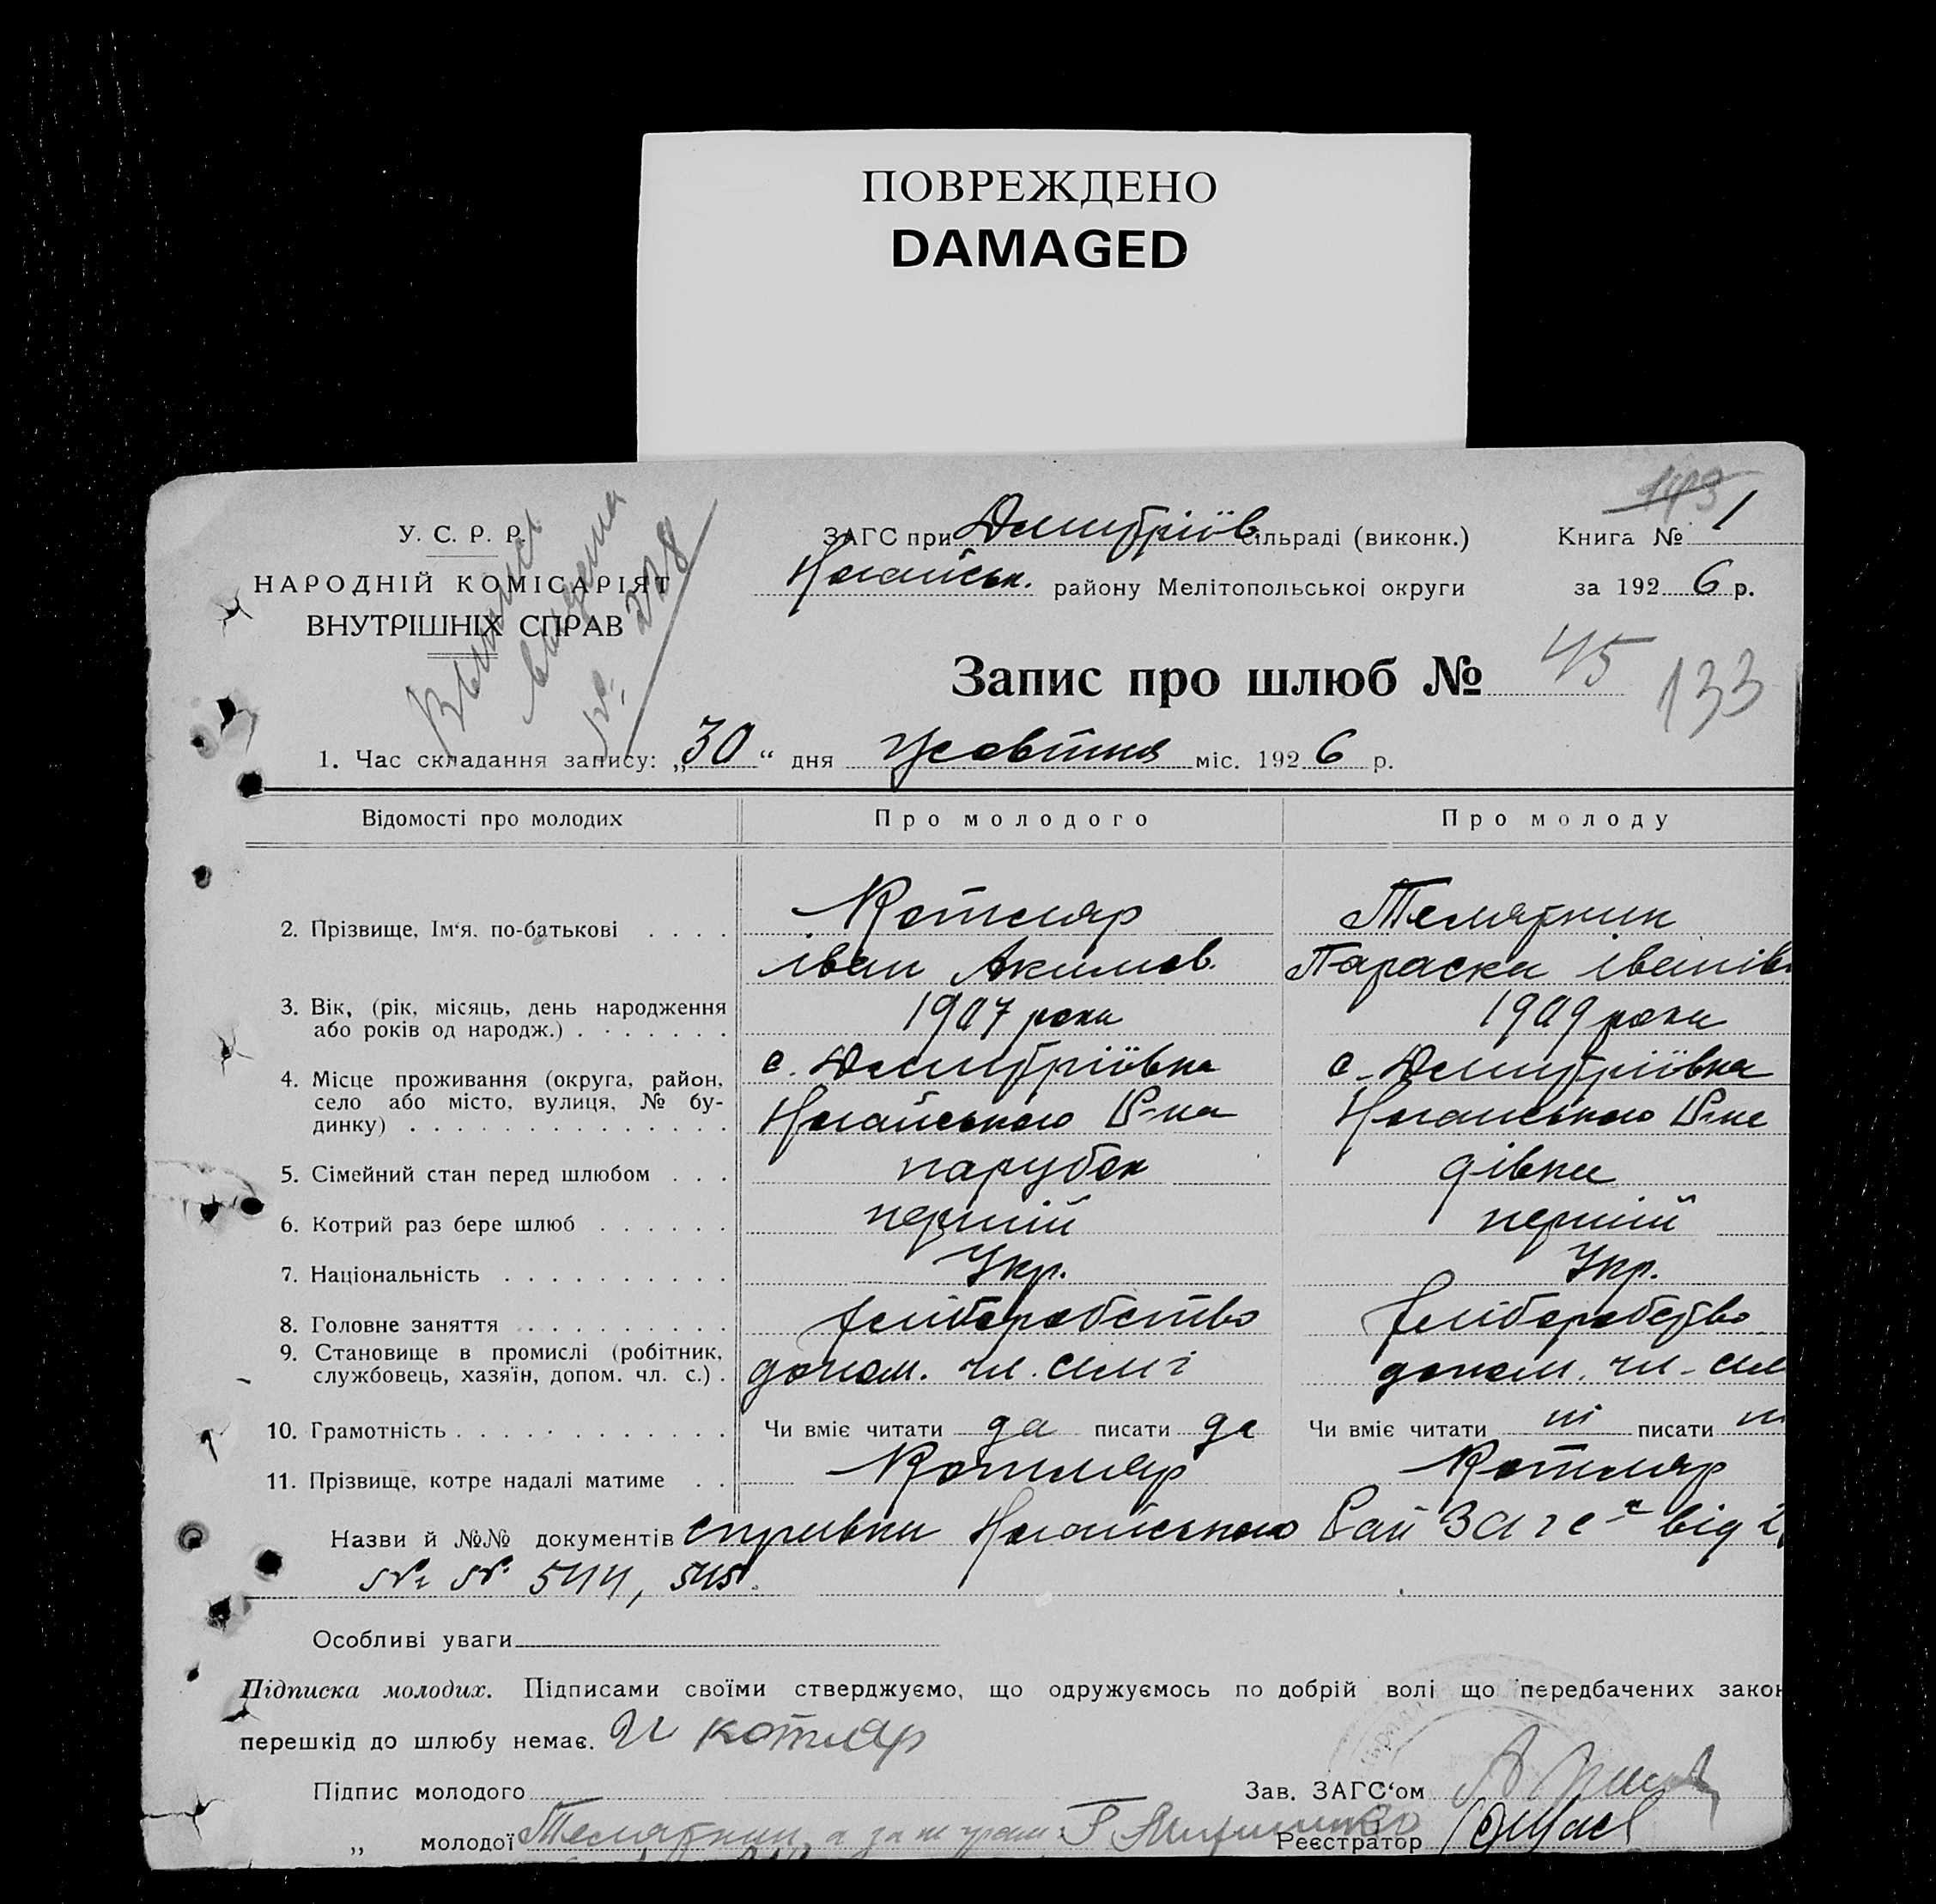 ПОВРЕЖДЕНО
DAMAGED
143
У. С. Р. Р.
НАРОДНІЙ КОМІСАРІЯТ
ВНУТРІШНІХ СПРАВ
Выпись
выдана
№ 228
ЗАГС при Дмитріів Сільраді (виконк.)
Ногайськ. району Мелітопольської округи
Книга № 1
за 1926 р.
Запис про шлюб № 45
133
1. Час складання запису: „30“ дня Жовтня міс. 1926 р.
Відомості про молодих Про молодого Про молоду
2. Прізвище, Ім‘я, по-батькові . . . . Котляр Темятник
іван Акимов. Параска іванів
3. Вік, (рік, місяць, день народження або років од народж.) . . . . . . . 1907 роки 1909 роки
4. Місце проживання (округа, район, село або місто, вулиця, № будинку) . . . с. Дмитріівка с. Дмитріівка
Ногайського Р-на Ногайського Р-на
5. Сімейний стан перед шлюбом . . . парубок дівка
6. Котрий раз бере шлюб . . . . . . перший перший
7. Національність . . . . . . . . . . Укр. Укр.
8. Головне заняття . . . . . . . . . хліборобство хліборобство
9. Становище в промислі (робітник, службовець, хазяїн, допом. чл. с.) . допом. чл. сімі допом. чл. сім
10. Грамотність . . . . . . . . . . . . Чи вміє читати да писати да Чи вміє читати ні писати ні
11. Прізвище, котре надалі матиме . . Котляр Котляр
Назви й №№ документів справки Ногайського Рай Загс від 2
№ № 544, 545.
Особливі уваги
Підписка молодих. Підписами своїми стверджуємо, що одружуємось по добрій волі що передбачених закон
перешкід до шлюбу немає. И котляр
Підпис молодого Зав. ЗАГС‘ом
„ молодої Темятник а за не грам. Реєстратор